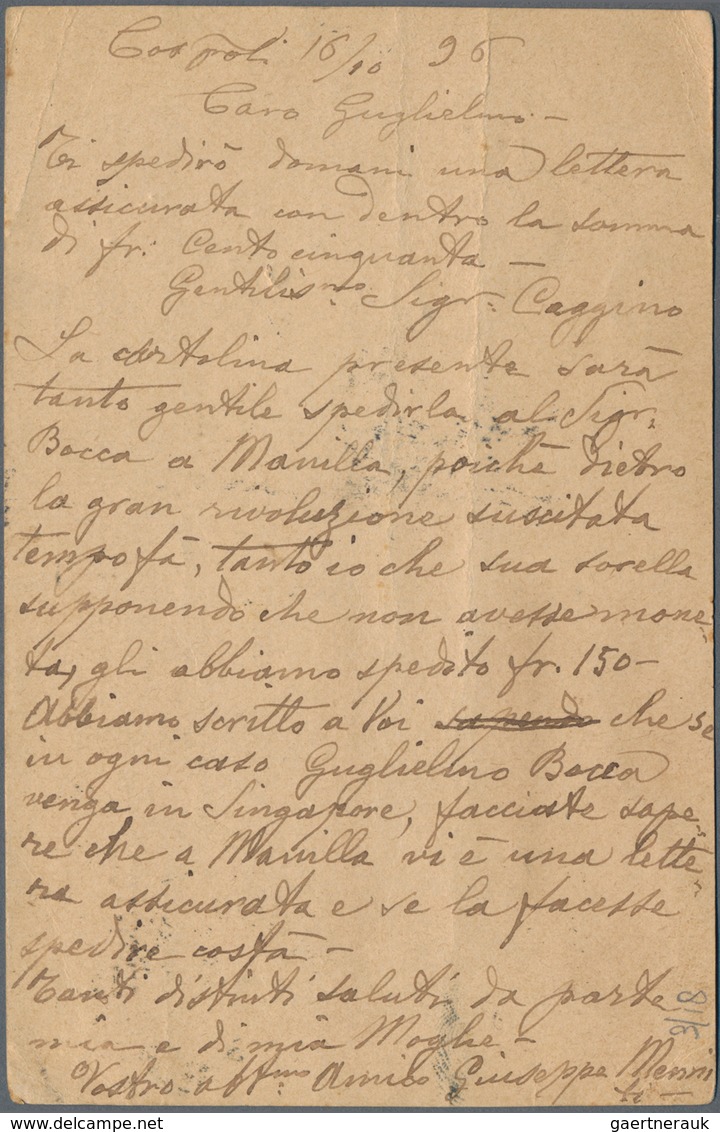 Cospoli 16/10 96
Caro Guglielmo -
Ti spedirò domani una lettera
assicurata con dentro la somma
di fr: Cento cinquanta -
Gentilis.mo Sigr: Caggino
La cartolina presente sarà
tanto gentile spedirla al Sigr:
Bocca a Manilla, poichè dietro
la gran rivoluzione suscitata
tempo fà, tanto io che sua sorella
supponendo che non avesse mone-
ta, gli abbiamo spedito fr. 150-
Abbiamo scritto a Voi sapendo che se
in ogni caso Guglielmo Bocca
venga in Singapore, facciate sape-
re che a Manilla vi è una lette-
ra assicurata e se la facesse
spedire costà -
Tanti distinti saluti da parte
mia e di mia Moglie -
Vostro aff.mo Amico Giuseppe Menni
ti -
3/18
gaertnerauk